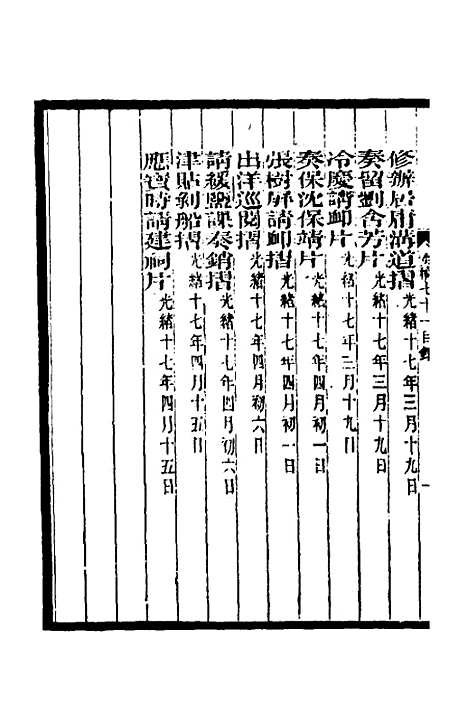 奏稿七十一目錄 一
修辦唐開溝道摺光緒十七年三月十九日
奏留劉含芳片光緒十七年三月十九日
冷慶請卹片光緒十七年三月十九日
奏保沈保靖片光緒十七年四月初一日
張樹屏請卹摺光緒十七年四月初一日
出洋巡閱摺光緒十七年四月初六日
請緩鹽課奏銷摺光緒十七年四月初六日
津貼剝船摺光緒十七年四月十五日
應寶時請建祠片光緒十七年四月十五日